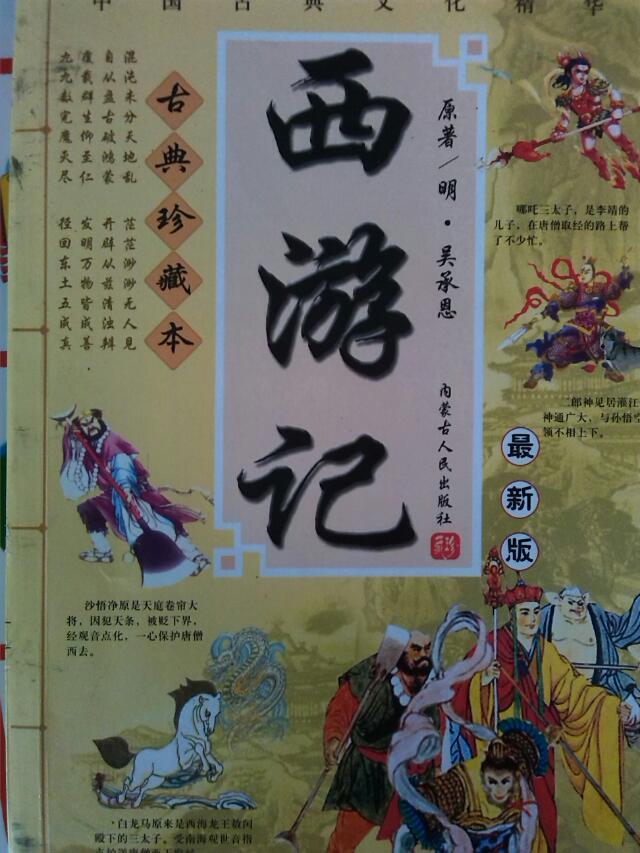 中国古典文化精华
西游记
原著/明·吴承恩
内蒙古人民出版社
古典珍藏本
混沌未分天地乱 茫茫渺渺无人见
自从盘古破鸿蒙 开辟从兹清浊辩
覆载群生仰至仁 发明万物皆成善
九九数完魔灭尽 径回东土五成真
哪吒三太子，是李靖的
儿子，在唐僧取经的路上帮
了不少忙。
二郎神见居灌江
神通广大，与孙悟空
领不相上下。
最新版
沙悟净原是天庭卷帘大
将，因犯天条，被贬下界，
经观音点化，一心保护唐僧
西去。
白龙马原来是西海龙王敖闰
殿下的三太子。受南海观世音指